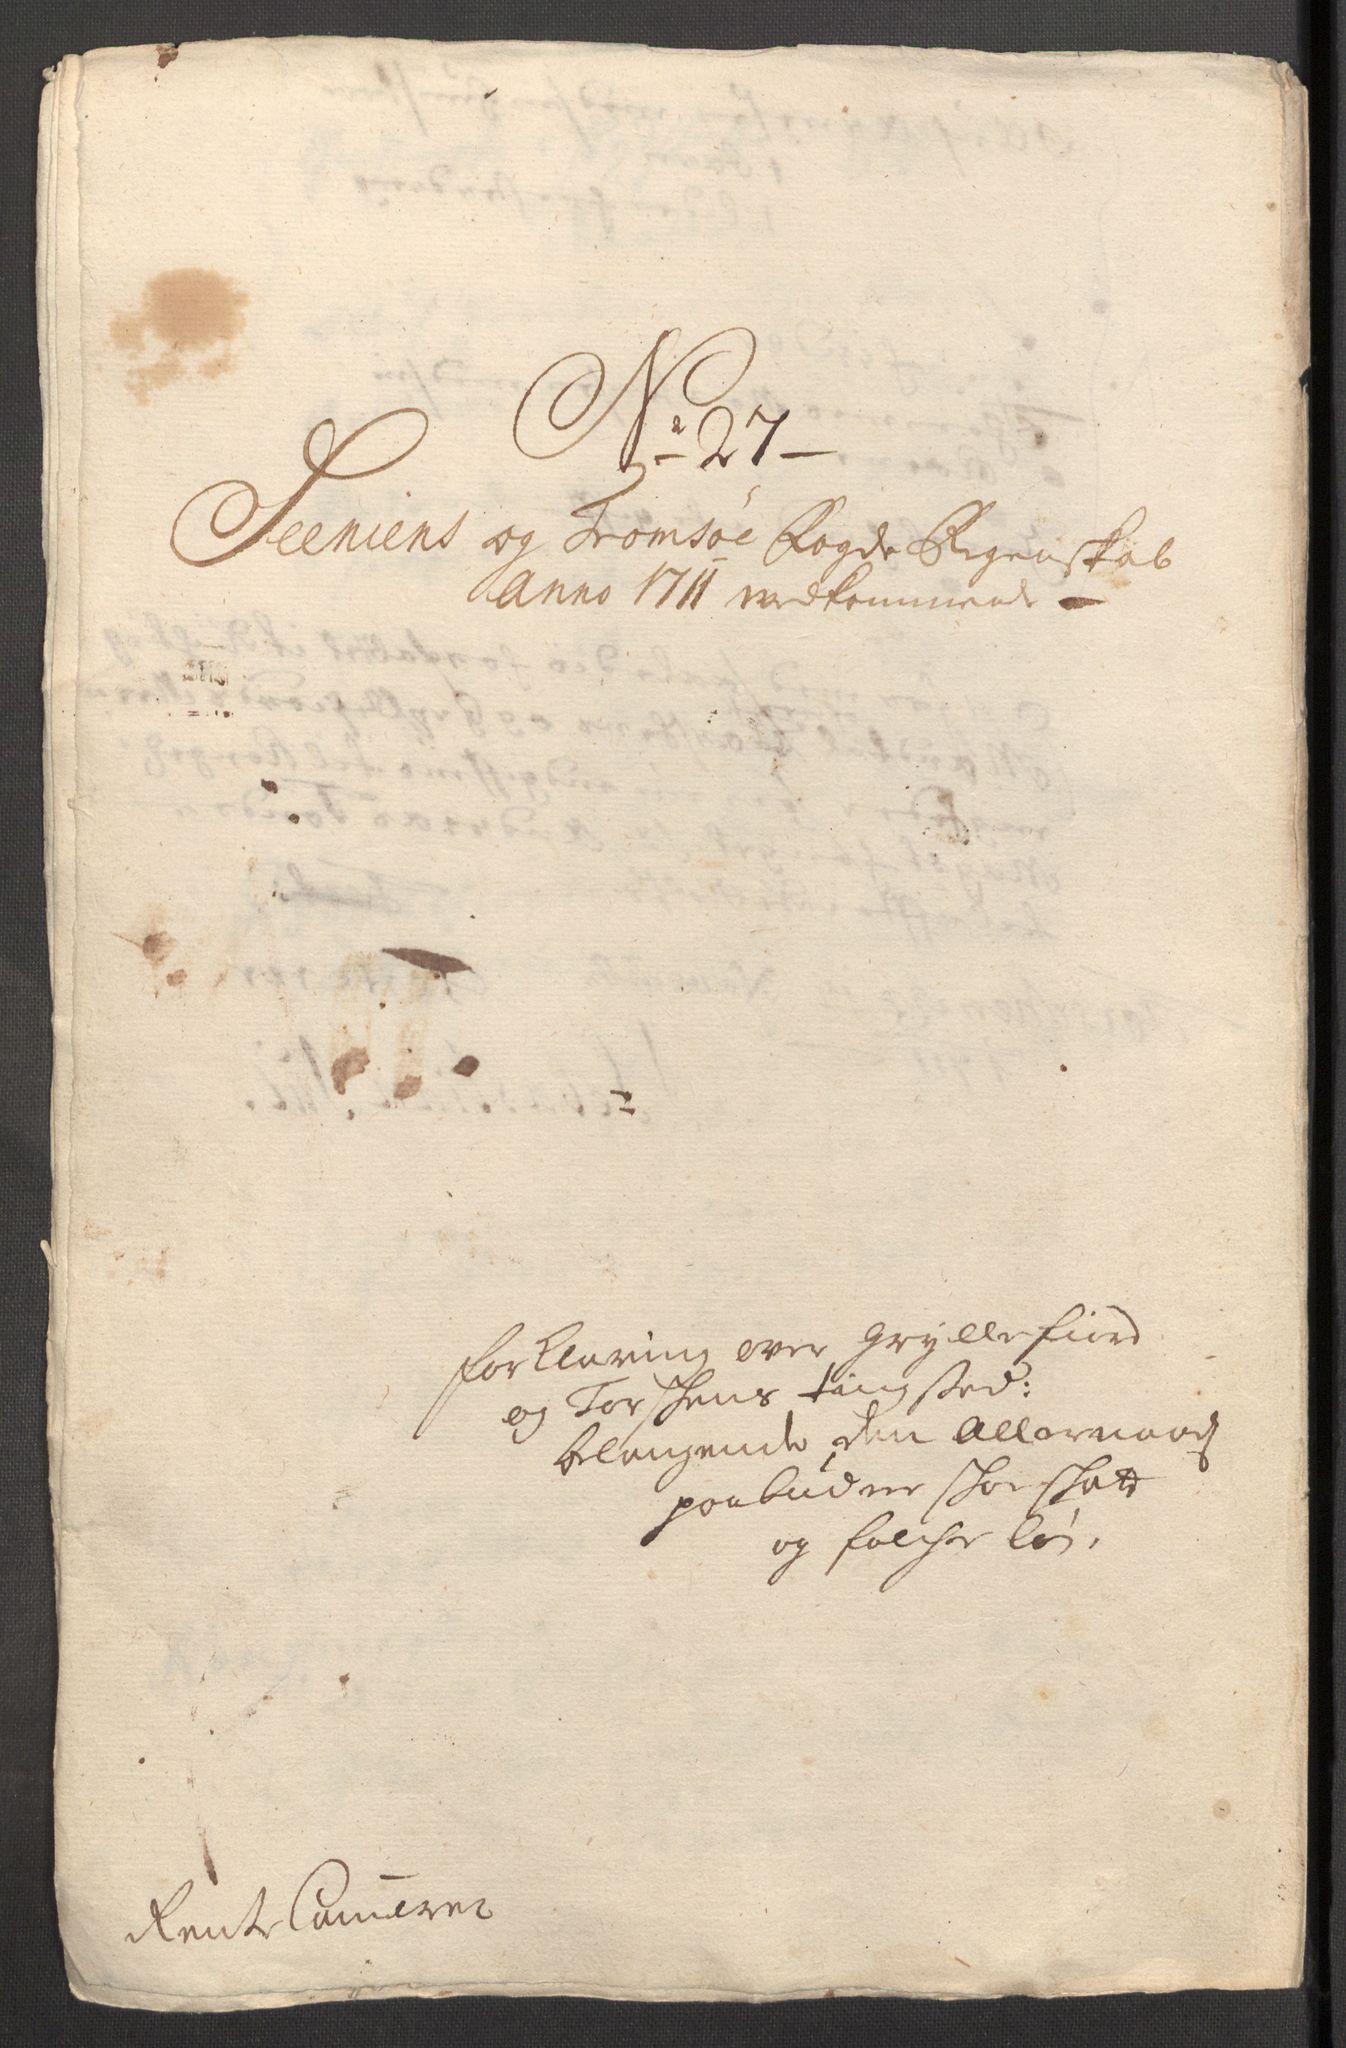 No 27
Seeniens og Tromsøe Fogde Regenskab
Anno 1711 vedkommende
forklaring over Gryllefiord
og Torschens tingsted:
belangende den Allernaadß
paabudne schoe schatt
og folche løn,
Rente Cammeret